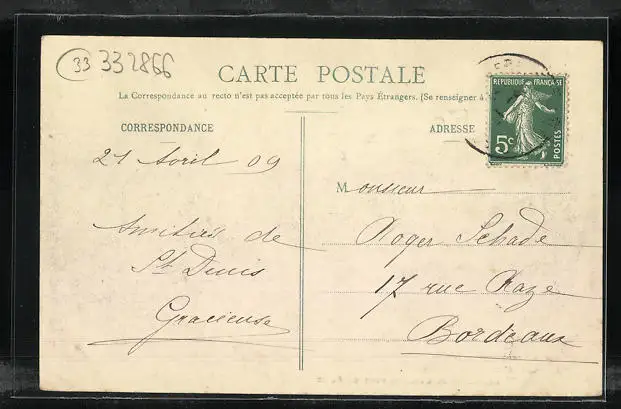 33 332866
CARTE POSTALE
La Correspondance au recto n'est pas acceptée par tous les Pays Étrangers. (Se renseigner à
CORRESPONDANCE
ADRESSE
REPUBLIQUE FRANÇAISE
5c
POSTES
21 Avril 09
Amitiés de
St Denis
Gracieuse
Monsieur
Roger Schade
17 rue Raze
Bordeaux